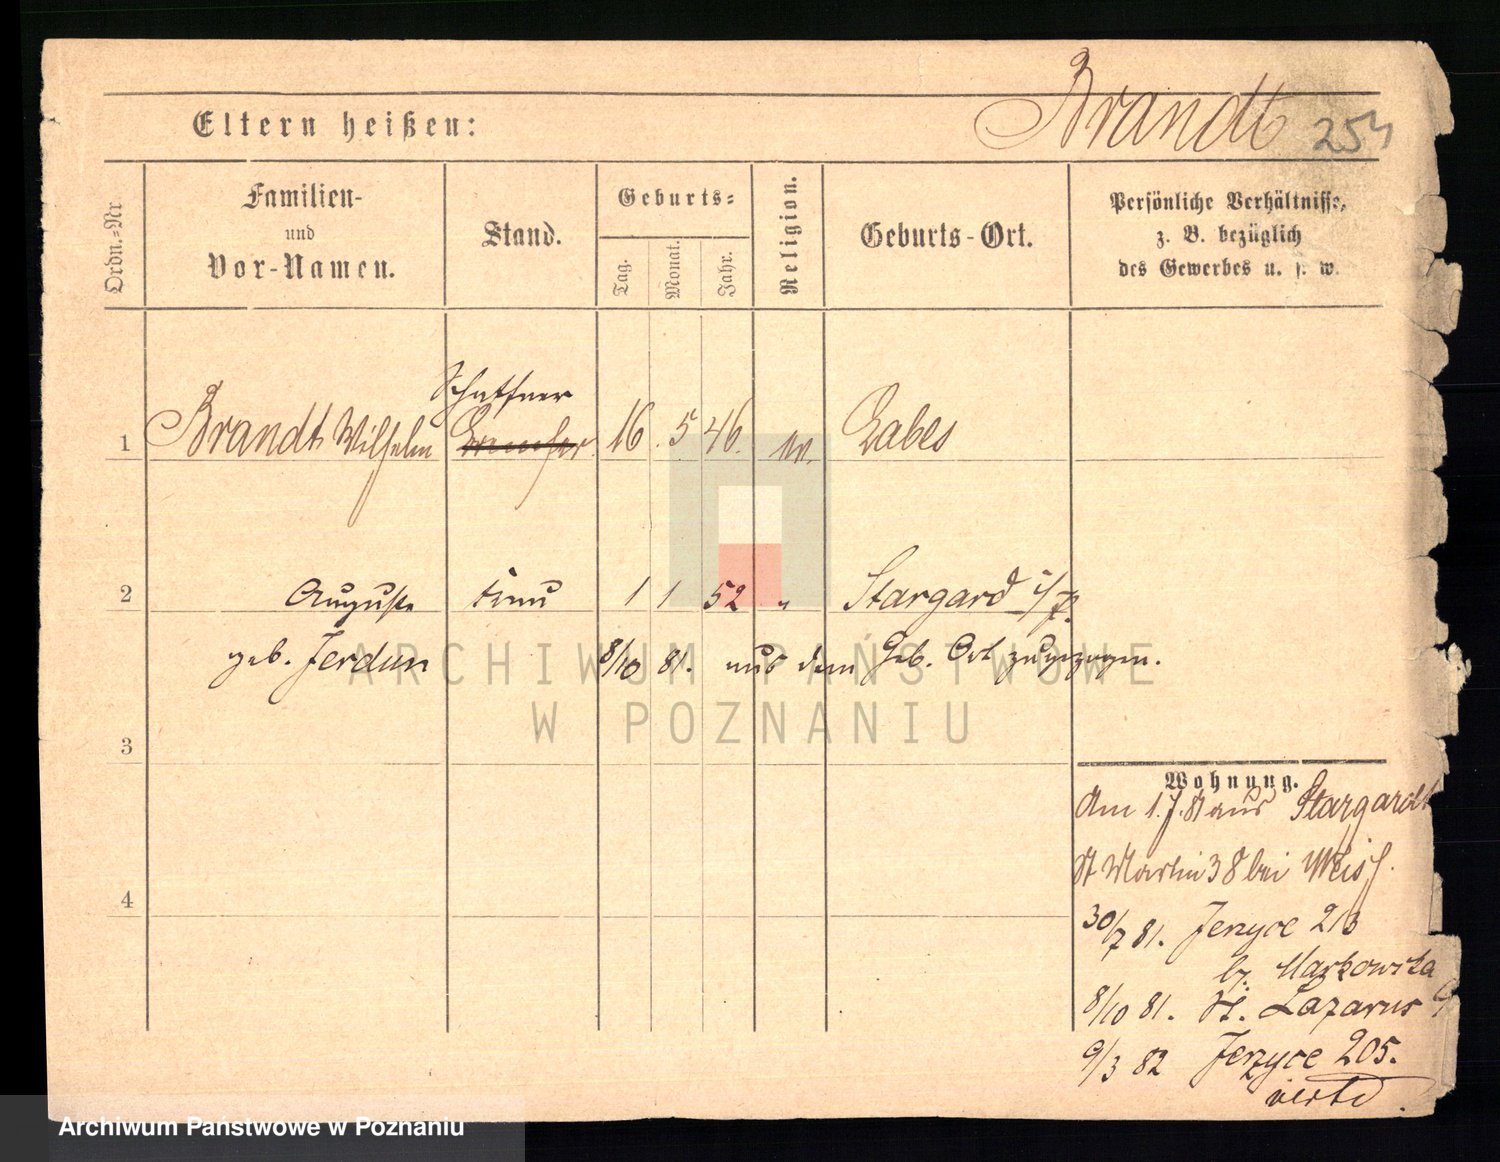 Brandt 254
Eltern heißen:
Ordn.-Nr
Familien- und Vor-Namen.
Stand.
Geburts-
Tag.
Monat.
Jahr.
Religion.
Geburts-Ort.
Persönliche Verhältnisse,
z. B. bezüglich
des Gewerbes u. s. w.
Schaffner
1 Brandt Wilhelm 16. 5 46. ev. Labes
2 Auguste Frau 1 1 52 " Stargard i/P.
geb. Jerdun 8/10 81. aus dem Geb. Ort zugezogen.
3
4
Wohnung.
Am 1.7.81 aus Stargardt
St Martin 38 bei Weiß.
30/7 81. Jerzyce 213
b. Markowska
8/10 81. St. Lazarus 9
9/3 82 Jerzyce 205.
verte
ARCHIWUM PAŃSTWOWE
W POZNANIU
Archiwum Państwowe w Poznaniu